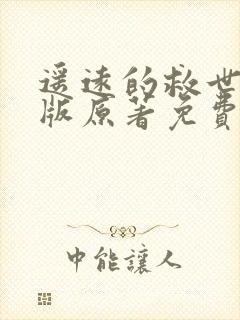 遥远的救世
版原著免費
中能讓人